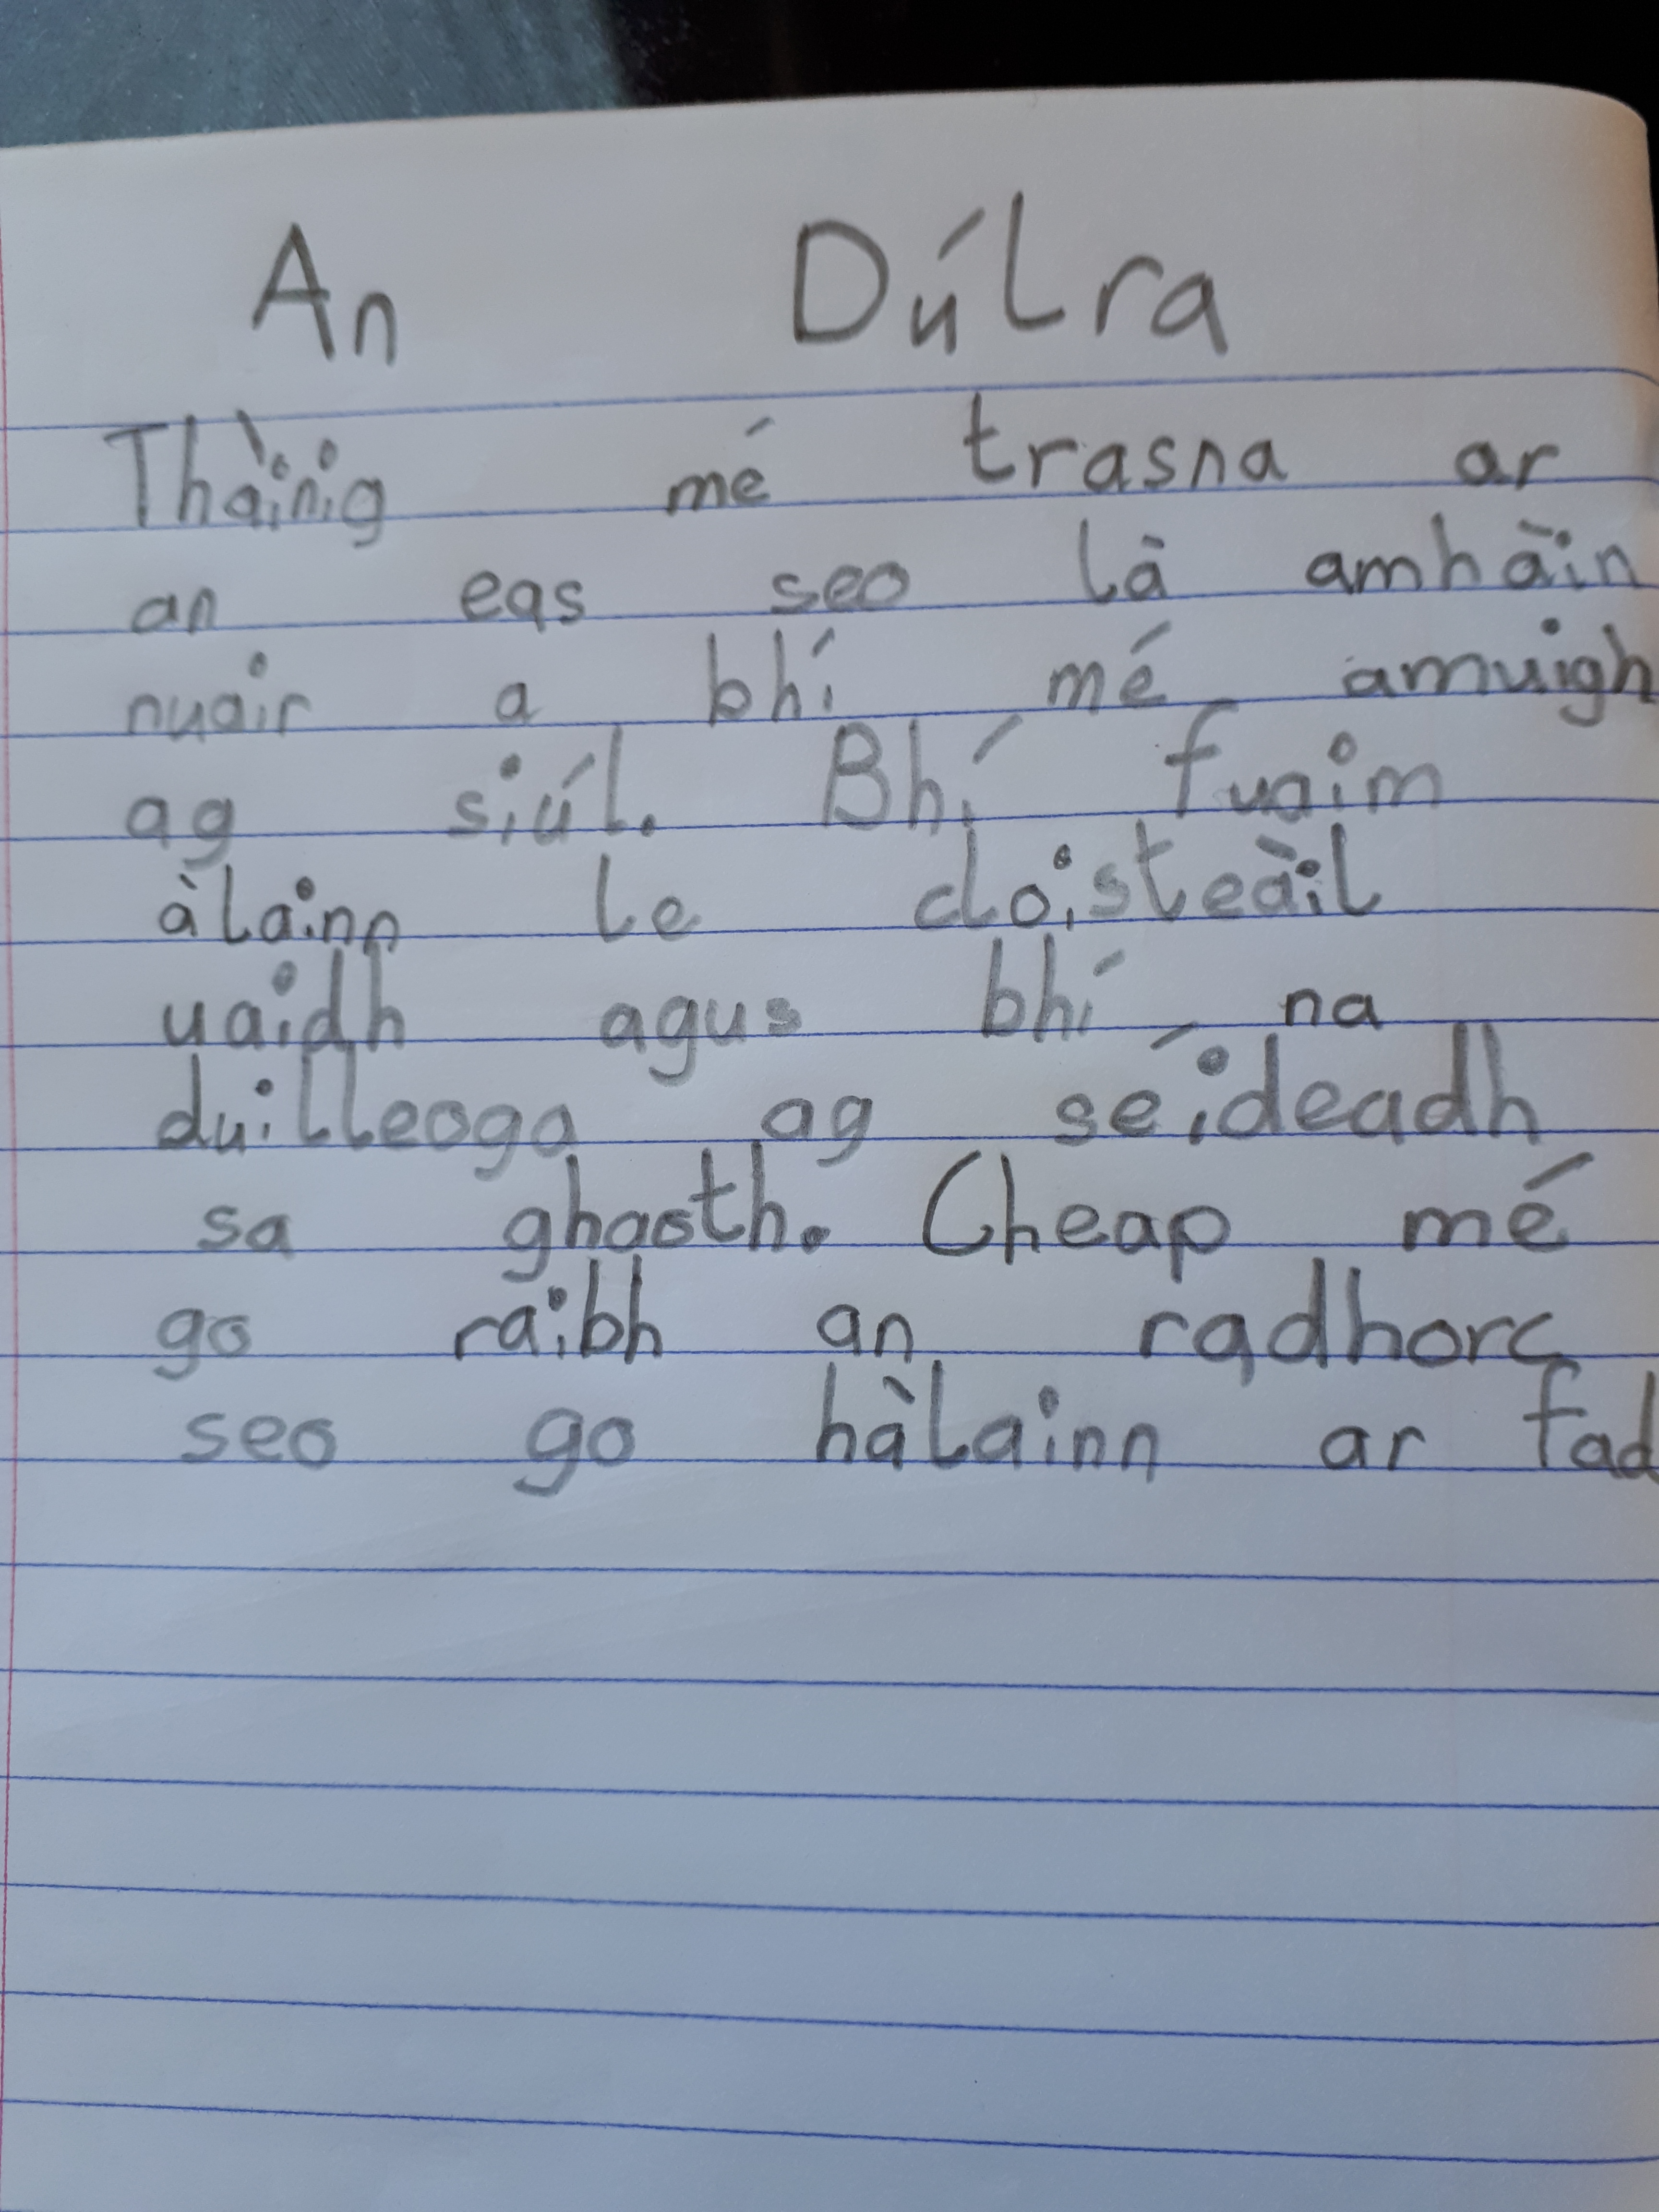 An Dúlra
Thàinig mé trasna ar
an eas seo là amhàin
nuair a bhí mé amuigh
ag siúl. Bhí fuaim
àlainn le cloisteàil
uaidh agus bhí na
duilleoga ag séideadh
sa ghaoth. Cheap mé
go raibh an radharc
seo go hàlainn ar fad